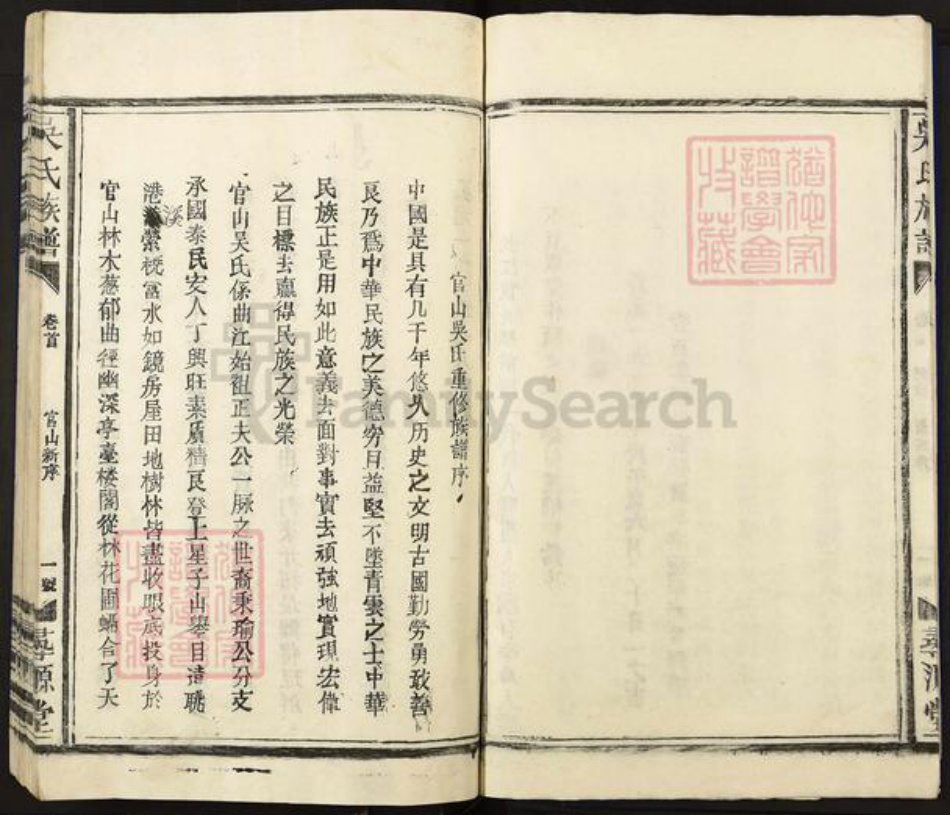 吳氏族譜
猶他家譜學會收藏
官山吳氏重修族譜序
中國是具有几千年悠久历史之文明古國勤勞勇敢善
良乃爲中華民族之美德穷且益堅不墜青雲之士中華
民族正是用如此意義去面對事實去頑強地實現宏偉
之目標去贏得民族之光榮
官山吳氏係曲江始祖正夫公一脉之世裔秉瑜公分支
承國泰民安人丁興旺素質精良登上星子山舉目遠眺
港溪縈繞富水如鏡房屋田地樹林皆盡收眼底投身於
官山林木葱郁曲徑幽深亭臺楼閣從林花圃蟎合了天
猶他家譜學會收藏
吳氏族譜
卷首
官山新序
一號
尋源堂
尋源堂
FamilySearch